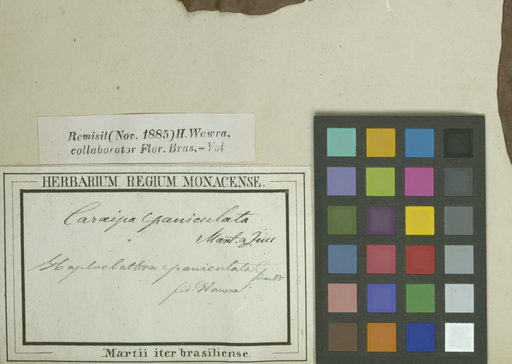 Remisit (Nov. 1885) H. Wawra,
collaborator Flor. Bras. – Vol
HERBARIUM REGIUM MONACENSE.
Caraipa paniculata
Mart.
Haploclathra paniculata Benth
fid. Wawra.
Martii iter brasiliense.